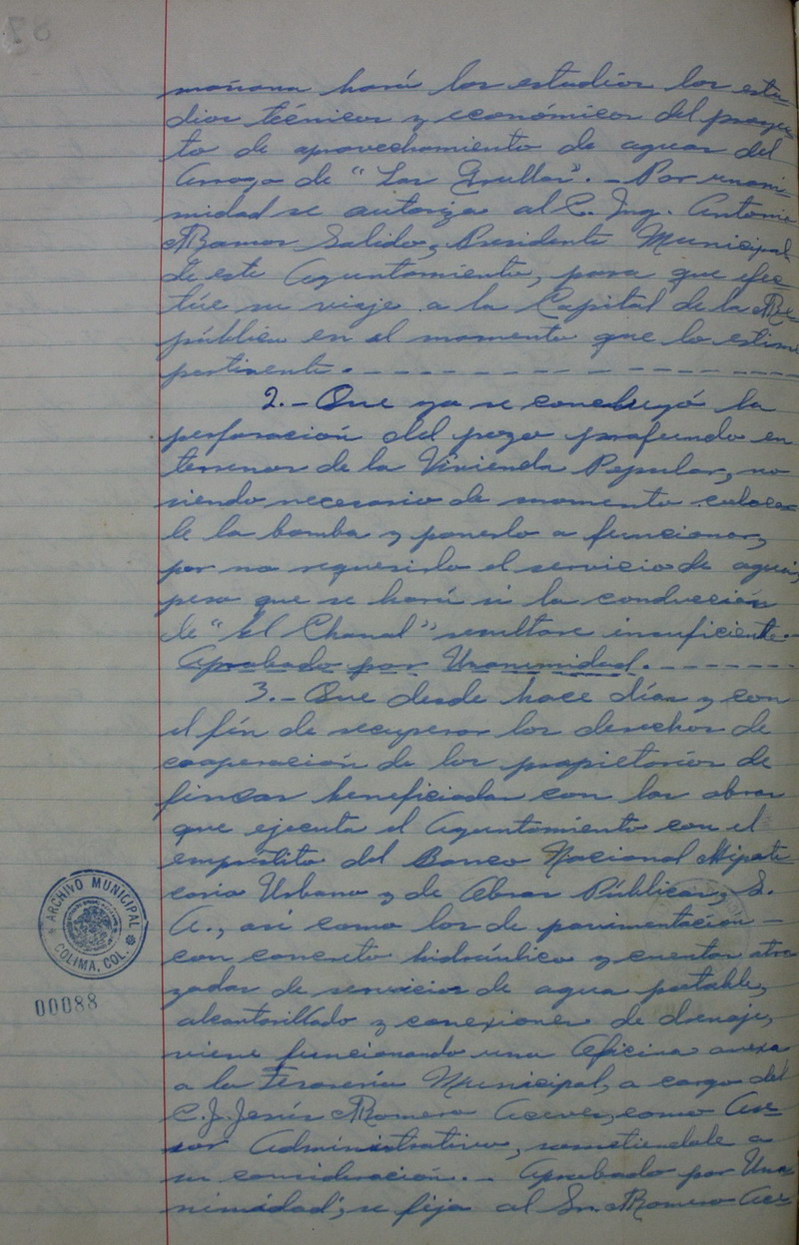 mañana hará los estudios los estu-
dios técnicos y económicos del proyec-
to de aprovechamiento de aguas del
Arroyo de "Las Grullas". - Por unani-
midad se autoriza al C. Ing. Antonio
Ramos Salido, Presidente Municipal
de este Ayuntamiento, para que efec-
túe su viaje a la Capital de la Re-
pública en el momento que lo estime
pertinente. - - - - - - - - - - -
2. - Que ya se concluyó la
perforación del pozo profundo en
terrenos de la Vivienda Popular, no
siendo necesario de momento colocar
le la bomba y ponerlo a funcionar,
por no requerirlo el servicio de agua,
pero que se hará si la conducción
de "El Chanal" resultare insuficiente. -
Aprobado por Unanimidad. - - - - - -
3. - Que desde hace días y con
el fín de recuperar los derechos de
cooperación de los propietarios de
fincas beneficiadas con las obras
que ejecuta el Ayuntamiento con el
empréstito del Banco Nacional Hipote
cario Urbano y de Obras Públicas, S.
A., así como los de pavimentación -
con concreto hidráulico y cuentas atra
zadas de servicios de agua potable,
alcantarillado y conexiones de drenaje,
viene funcionando una Oficina anexa
a la Tesorería Municipal, a cargo del
C. J. Jesús Romero Aceves, como Ase
sor Administrativo, sometiendole a
su consideración. - Aprobado por Una
nimidad; se fija al Sr. Romero Ace
ARCHIVO MUNICIPAL
COLIMA, COL.
00088
87